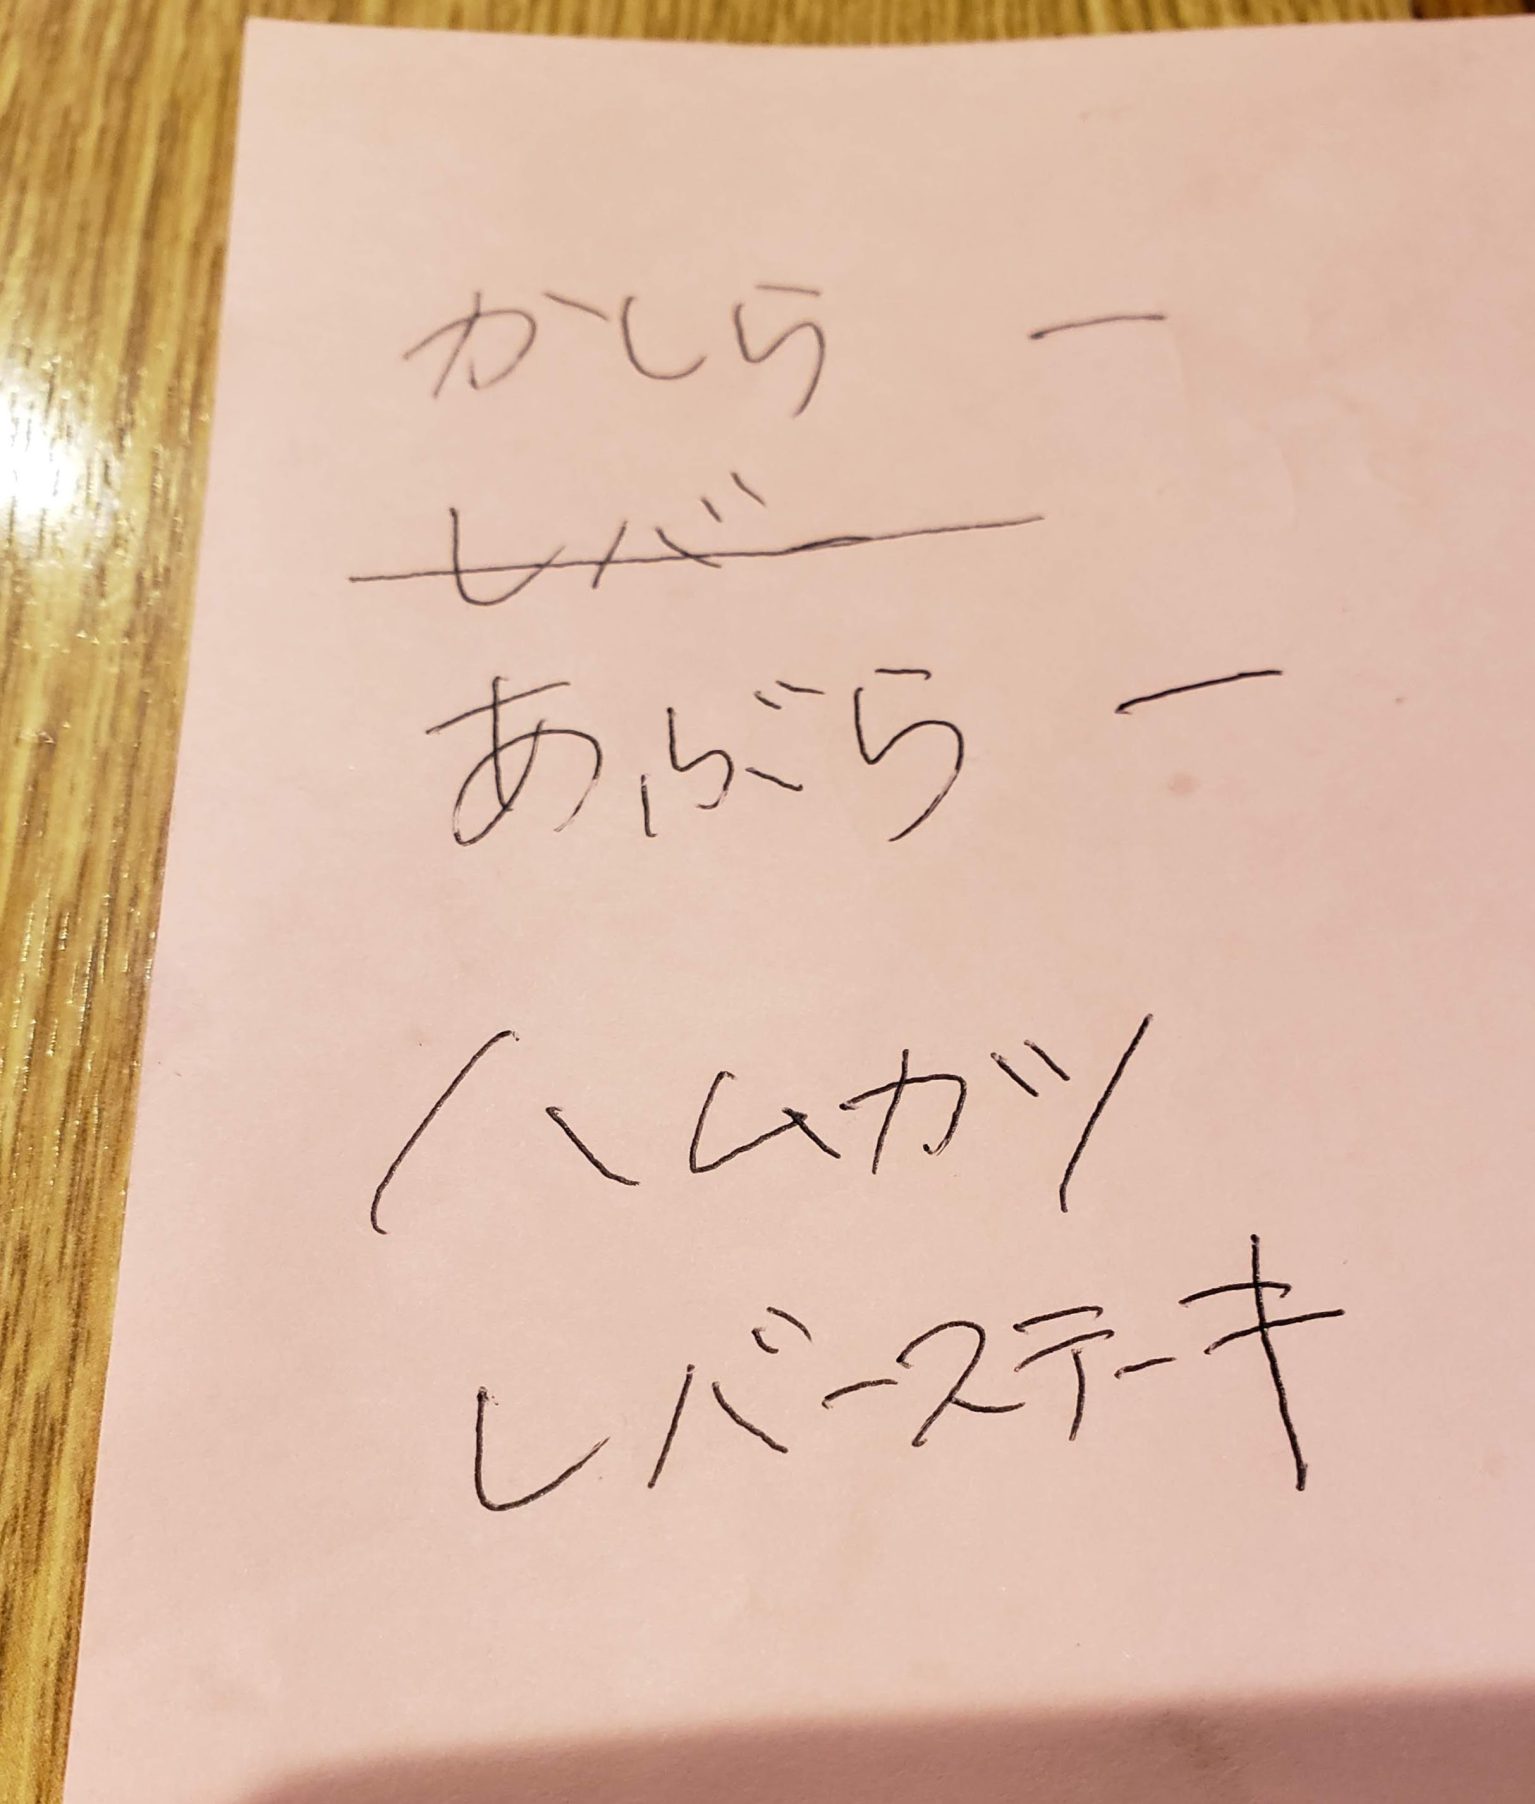 かしら 一
レバー
あぶら 一
ハムカツ
レバーステーキ